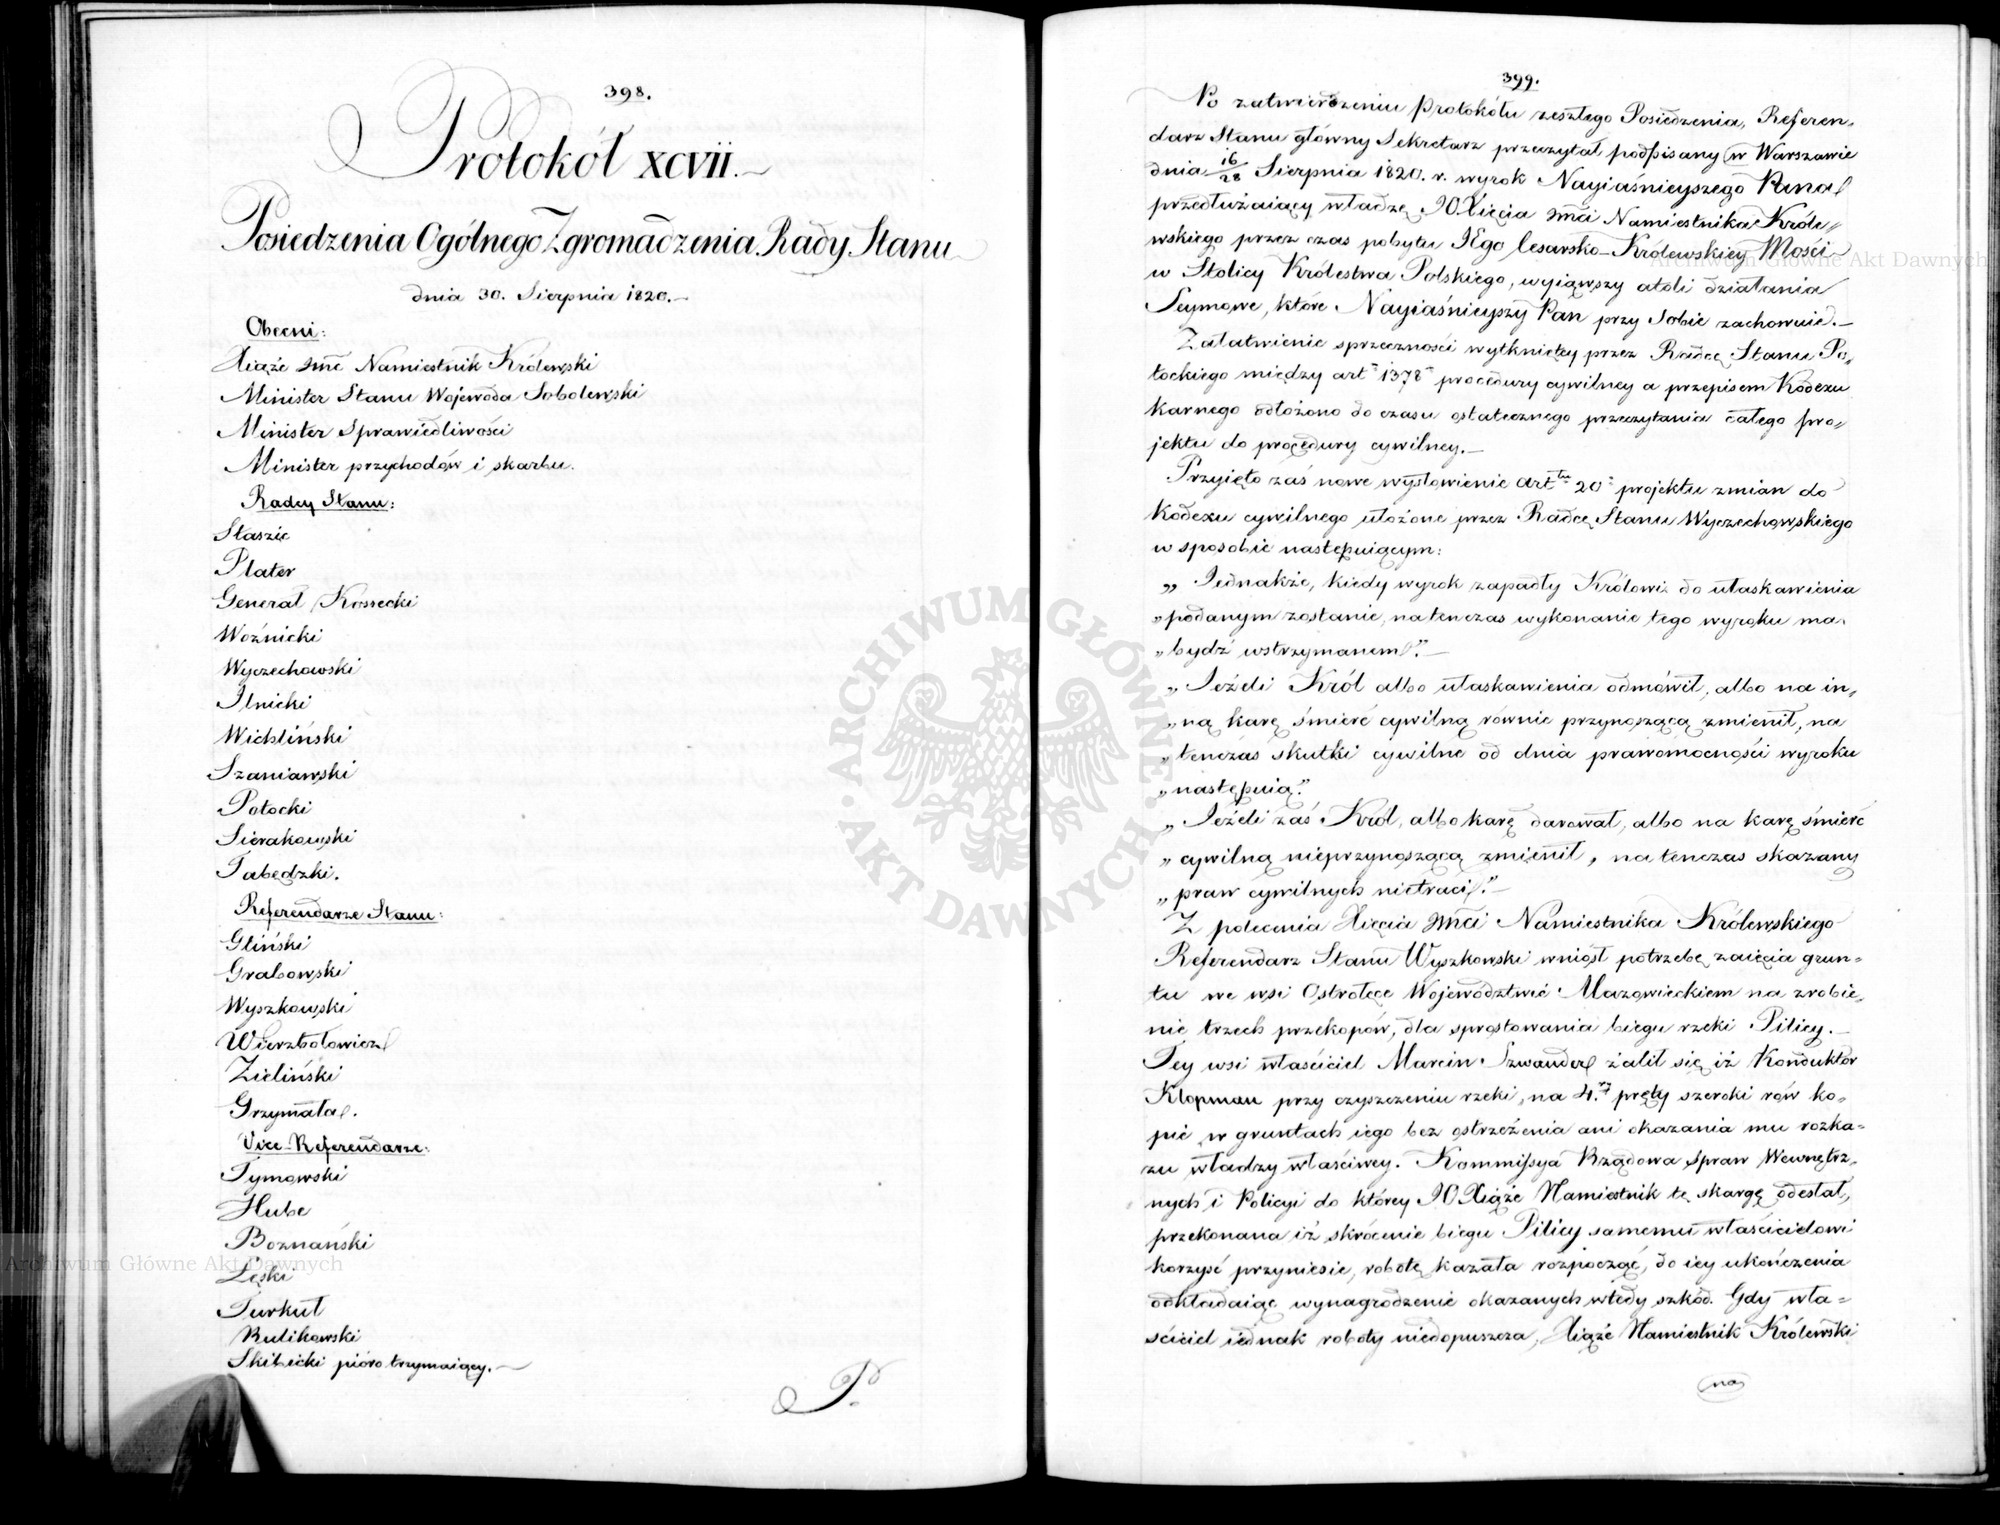 398.
Protokół XCVII.
Posiedzenia Ogólnego Zgromadzenia Rady Stanu
dnia 30. Sierpnia 1820.
Obecni:
Xiąże Jmć Namiestnik Królewski
Minister Stanu Wojewoda Sobolewski
Minister Sprawiedliwości
Minister przychodów i skarbu.
Radcy Stanu:
Staszic
Plater
Generał Kossecki
Woźnicki
Wyczechowski
Ilnicki
Wichliński
Szaniawski
Potocki
Sierakowski
Tabędzki.
Referendarze Stanu:
Gliński
Grabowski
Wyszkowski
Wierzbołowicz
Zieliński
Grzymała.
Vice-Referendarze:
Tymowski
Hube
Boznański
Łęski
Turkuł
Rulikowski
Skibicki pióro trzymaiący.
P.
399.
Po zatwierdzeniu Protokółu zeszłego Posiedzenia, Referen-
darz Stanu główny Sekretarz przeczytał podpisany w Warszawie
dnia 16/28 Sierpnia 1820. r. wyrok Nayiaśnieyszego Pana
przedłużaiący władzę JO Xięcia Jmci Namiestnika Króle-
wskiego przez czas pobytu JEgo Cesarsko-Królewskiey Mości
w Stolicy Królestwa Polskiego, wyiąwszy atoli działania
Seymowe, które Nayiaśnieyszy Pan przy Sobie zachowuie.
Załatwienie sprzeczności wytkniętey przez Radcę Stanu Po-
tockiego między art 1378 procedury cywilney a przepisem Kodexu
karnego odłożono do czasu ostatecznego przeczytania całego pro-
jektu do procedury cywilney.
Przyięto zaś nowe wysłowienie Art 20 projektu zmian do
Kodexu cywilnego ułożone przez Radcę Stanu Wyczechowskiego
w sposobie następuiącym:
„ Jednakże, kiedy wyrok zapadły Królowi do ułaskawienia
„ podanym zostanie, natenczas wykonanie tego wyroku ma
„ bydź wstrzymanem."
„ Jeżeli Król albo ułaskawienia odmówił, albo na in-
„ ną karę śmierć cywilną równie przynoszącą zmienił, na
„ tenczas skutki cywilne od dnia prawomocności wyroku
„ następuią."
„ Jeżeli zaś Król, albo karę darował, albo na karę śmierć
„ cywilną nieprzynoszącą zmienił, na tenczas skazany
„ praw cywilnych nietraci."
Z polecenia Xięcia Jmci Namiestnika Królewskiego
Referendarz Stanu Wyszkowski wniósł potrzebę zaięcia grun-
tu we wsi Ostrołęce Województwie Mazowieckiem na zrobie-
nie trzech przekopów, dla sprostowania biegu rzeki Pilicy.
Tey wsi właściciel Marcin Szwander żalił się iż Konduktor
Klopman przy czyszczeniu rzeki, na 4. pręty szeroki rów ko-
pie w gruntach iego bez ostrzeżenia ani okazania mu rozka-
zu władzy właściwey. Kommissya Rządowa Spraw Wewnętrz-
nych i Policyi do którey JO Xiąże Namiestnik tę skargę odesłał,
przekonana iż skrócenie biegu Pilicy samemu właścicielowi
korzyść przyniesie, robotę kazała rozpocząć, do iey ukończenia
odkładaiąc wynagrodzenie okazanych wtedy szkód. Gdy wła-
ściciel iednak roboty niedopuszcza, Xiąże Namiestnik Królewski
na
ARCHIWUM GŁÓWNE
AKT DAWNYCH
Archiwum Główne Akt Dawnych
Archiwum Główne Akt Dawnych